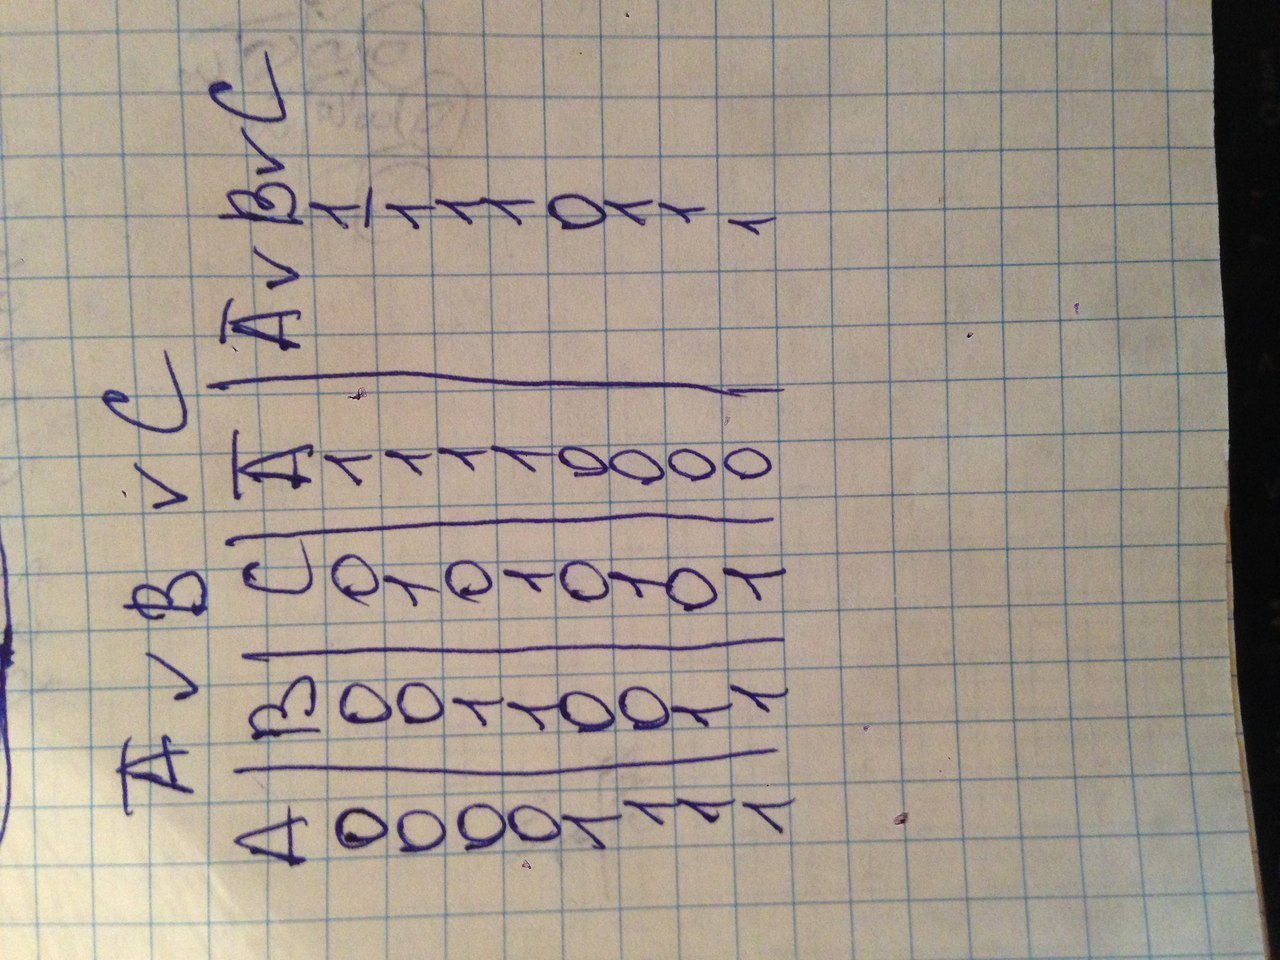 Ā v B v C
A | B | C | Ā | Ā v B v C
0 | 0 | 0 | 1 | 1
0 | 0 | 1 | 1 | 1
0 | 1 | 0 | 1 | 1
0 | 1 | 1 | 1 | 1
1 | 0 | 0 | 0 | 0
1 | 0 | 1 | 0 | 1
1 | 1 | 0 | 0 | 1
1 | 1 | 1 | 0 | 1